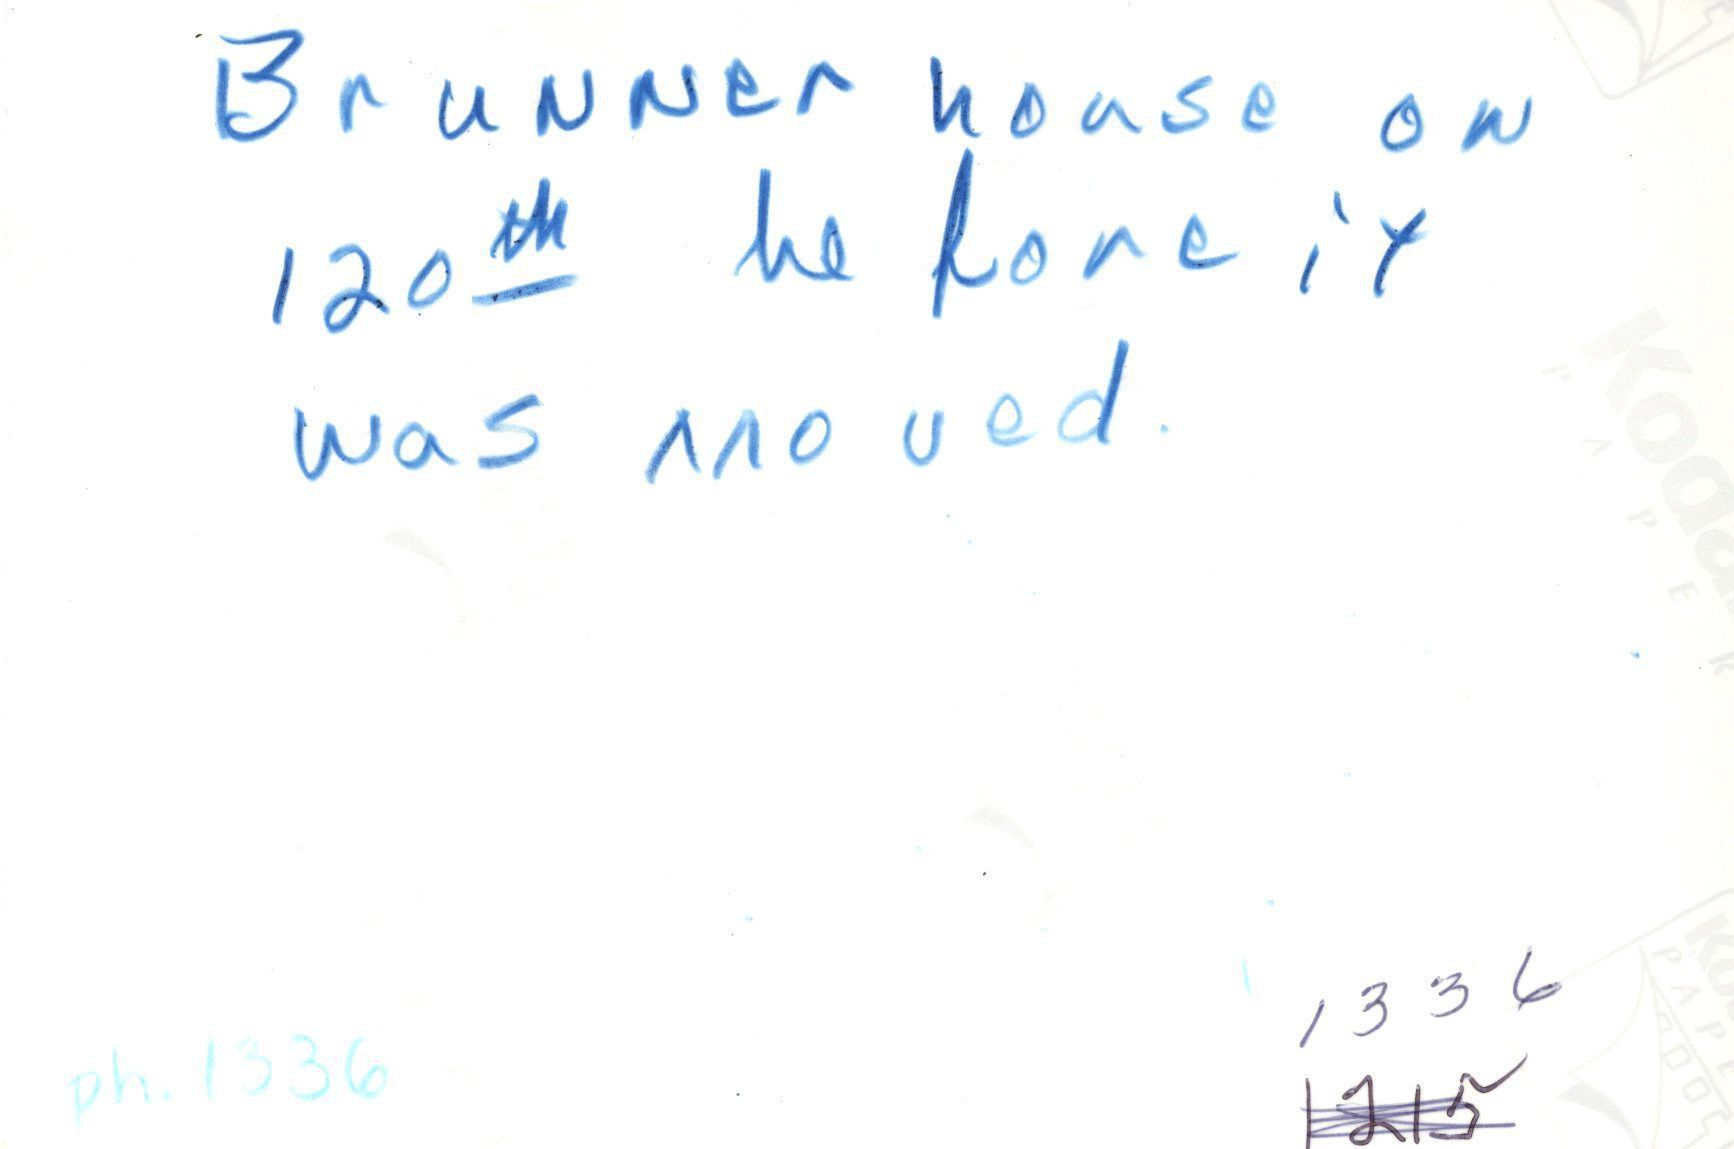 Brunner house on
120th before it
was moved.
1336
ph. 1336
1215
Kodak
PAPER